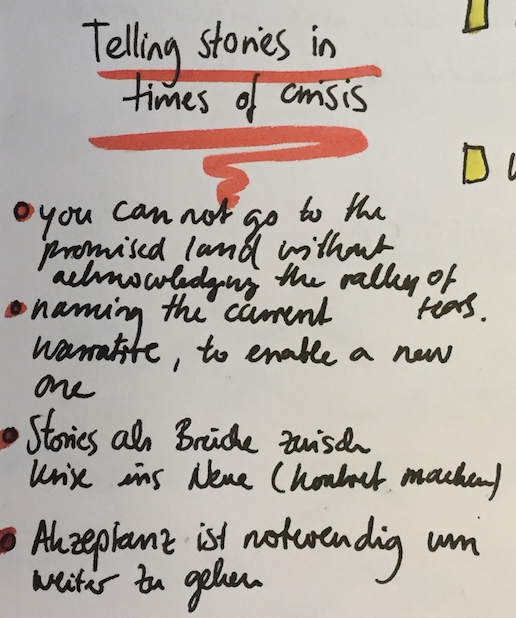 Telling stories in
times of crisis
you can not go to the
promised land without
acknowledging the valley of
tears.
naming the current
narrative, to enable a new
one
Stories als Brücke zwisch
Krise ins Neue (konkret machen)
Akzeptanz ist notwendig um
weiter zu gehen